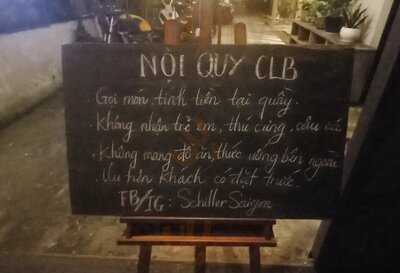 NỘI QUY CLB
. Gọi món, tính tiền tại quầy.
. Không nhận trẻ em, thú cưng,
. Không mang đồ ăn, thức uống bên ngoài
. Ưu tiên khách có đặt trước.
FB/IG : Schiller Saigon